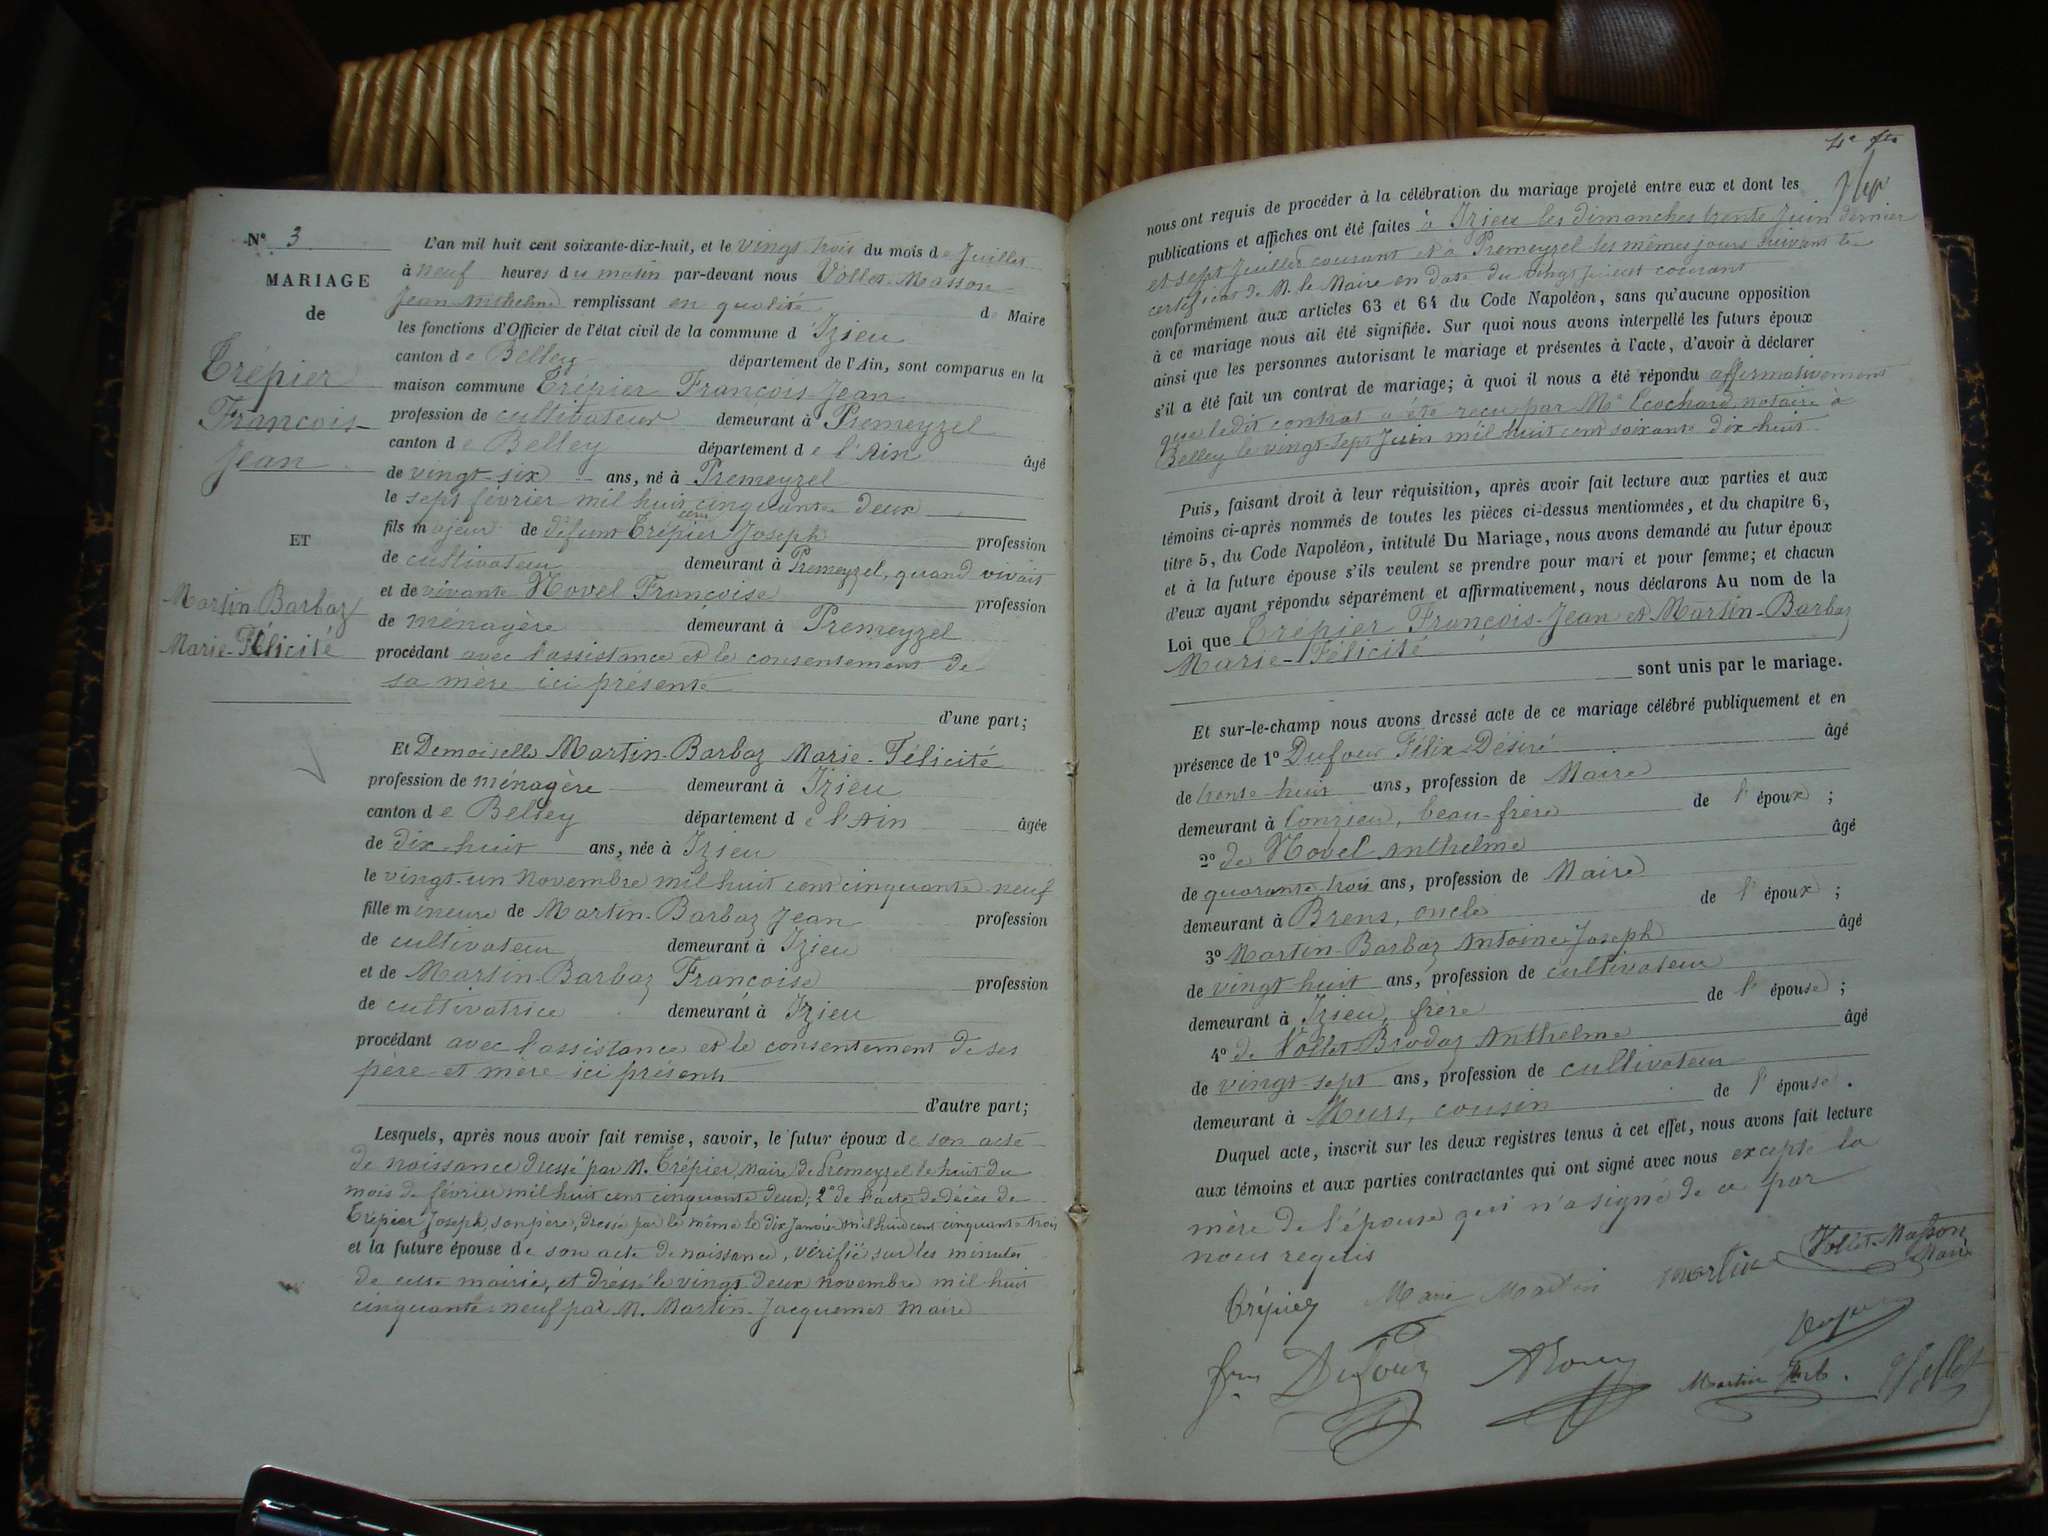 N° 3
MARIAGE
de
Trépier
François
Jean
ET
Martin Barbaz
Marie-Félicité
L'an mil huit cent soixante-dix-huit, et le vingt trois du mois de Juillet
à neuf heures du matin par-devant nous Vollet-Masson
Jean Anthelme remplissant en qualité de Maire
les fonctions d'Officier de l'état civil de la commune d'Izieu
canton de Belley département de l'Ain, sont comparus en la
maison commune Trépier François Jean
profession de cultivateur demeurant à Premeyzel
canton de Belley département de l'Ain âgé
de vingt-six ans, né à Premeyzel
le sept février mil huit cent cinquante deux
fils majeur de défunt Trépier Joseph profession
de cultivateur demeurant à Premeyzel, quand vivait
et de vivante Novel Françoise profession
de ménagère demeurant à Premeyzel
procédant avec l'assistance et le consentement de
sa mère ici présente
d'une part;
Et Demoiselle Martin-Barbaz Marie-Félicité
profession de ménagère demeurant à Izieu
canton de Belley département de l'Ain âgée
de dix-huit ans, née à Izieu
le vingt-un novembre mil huit cent cinquante-neuf
fille mineure de Martin-Barbaz Jean profession
de cultivateur demeurant à Izieu
et de Martin-Barbaz Françoise profession
de cultivatrice demeurant à Izieu
procédant avec l'assistance et le consentement de ses
père et mère ici présents
d'autre part;
Lesquels, après nous avoir fait remise, savoir, le futur époux de son acte
de naissance dressé par M. Trépier, maire de Premeyzel le huit du
mois de février mil huit cent cinquante deux; 2° de l'acte de décès de
Trépier Joseph, son père, dressé par le même le dix Janvier mil huit cent cinquante trois
et la future épouse de son acte de naissance, vérifié sur les minutes
de cette mairie, et dressé le vingt deux novembre mil huit
cinquante-neuf par M. Martin-Jacquemet maire
nous ont requis de procéder à la célébration du mariage projeté entre eux et dont les
publications et affiches ont été faites à Izieu les dimanches trente Juin dernier
et sept Juillet courant et à Premeyzel les mêmes jours suivant le
certificat de M. le Maire en date du vingt Juillet courant
conformément aux articles 63 et 64 du Code Napoléon, sans qu'aucune opposition
à ce mariage nous ait été signifiée. Sur quoi nous avons interpellé les futurs époux
ainsi que les personnes autorisant le mariage et présentes à l'acte, d'avoir à déclarer
s'il a été fait un contrat de mariage; à quoi il nous a été répondu affirmativement
que ledit contrat a été reçu par Me Ecochard, notaire à
Belley le vingt-sept Juin mil huit cent soixante dix-huit
Puis, faisant droit à leur réquisition, après avoir fait lecture aux parties et aux
témoins ci-après nommés de toutes les pièces ci-dessus mentionnées, et du chapitre 6,
titre 5, du Code Napoléon, intitulé Du Mariage, nous avons demandé au futur époux
et à la future épouse s'ils veulent se prendre pour mari et pour femme; et chacun
d'eux ayant répondu séparément et affirmativement, nous déclarons Au nom de la
Loi que Trépier François-Jean et Martin-Barbaz
Marie-Félicité
sont unis par le mariage.
Et sur-le-champ nous avons dressé acte de ce mariage célébré publiquement et en
présence de 1° Dufour Félix-Désiré âgé
de trente huit ans, profession de Maire
demeurant à Conzieu, beau-frère de l'époux;
2° de Novel Anthelme âgé
de quarante trois ans, profession de Maire
demeurant à Brens, oncle de l'époux;
3° Martin-Barbaz Antoine-Joseph âgé
de vingt huit ans, profession de cultivateur
demeurant à Izieu, frère de l'épouse;
4° de Vollet-Brodaz Anthelme âgé
de vingt-sept ans, profession de cultivateur
demeurant à Murs, cousin de l'épouse.
Duquel acte, inscrit sur les deux registres tenus à cet effet, nous avons fait lecture
aux témoins et aux parties contractantes qui ont signé avec nous excepté la
mère de l'épouse qui n'a signé de ce par
nous requis
Trépier Marie Martin Martin Vollet-Masson
Maire
Dufour Martin Barb. Vollet